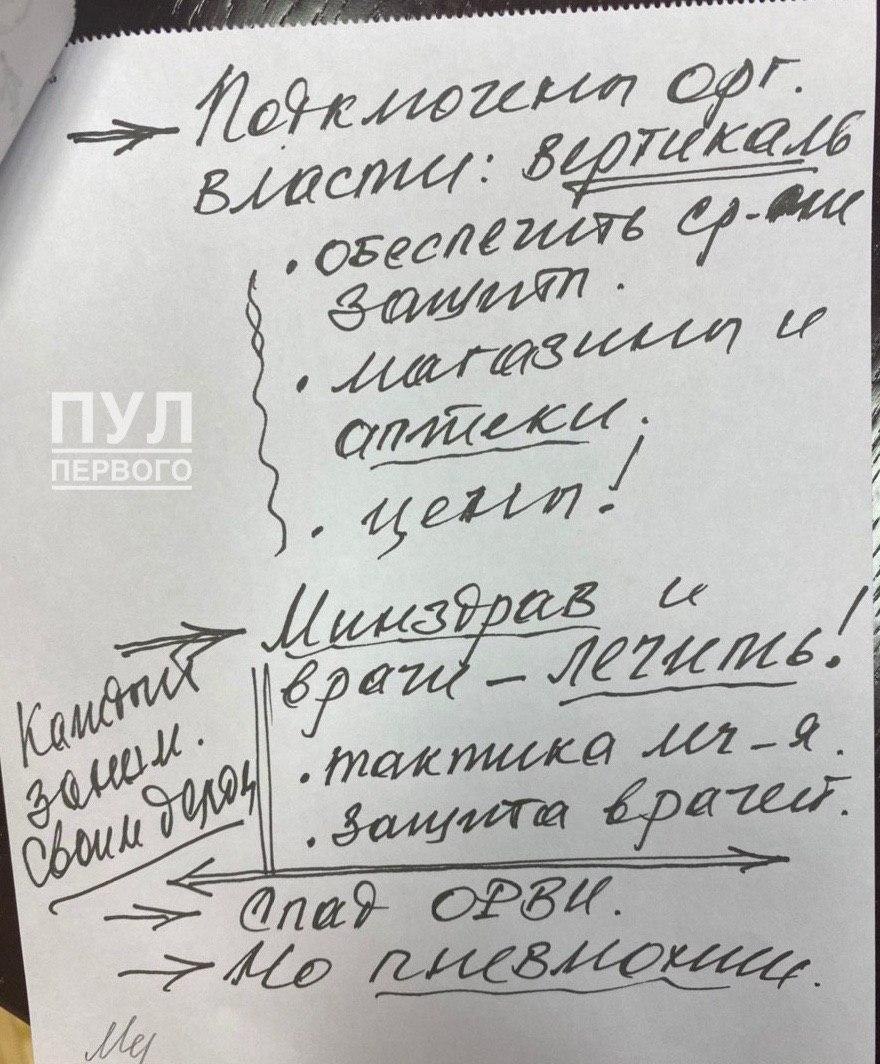 Подключены орг.
власти: вертикаль
• обеспечить ср-ми
защит.
• магазины и
аптеки.
• цены!
ПУЛ
ПЕРВОГО
Минздрав и
врачи – лечить!
• тактика леч-я.
• защита врачей.
Каждый
заним.
своим делом
Спад ОРВИ.
Но пневмонии.